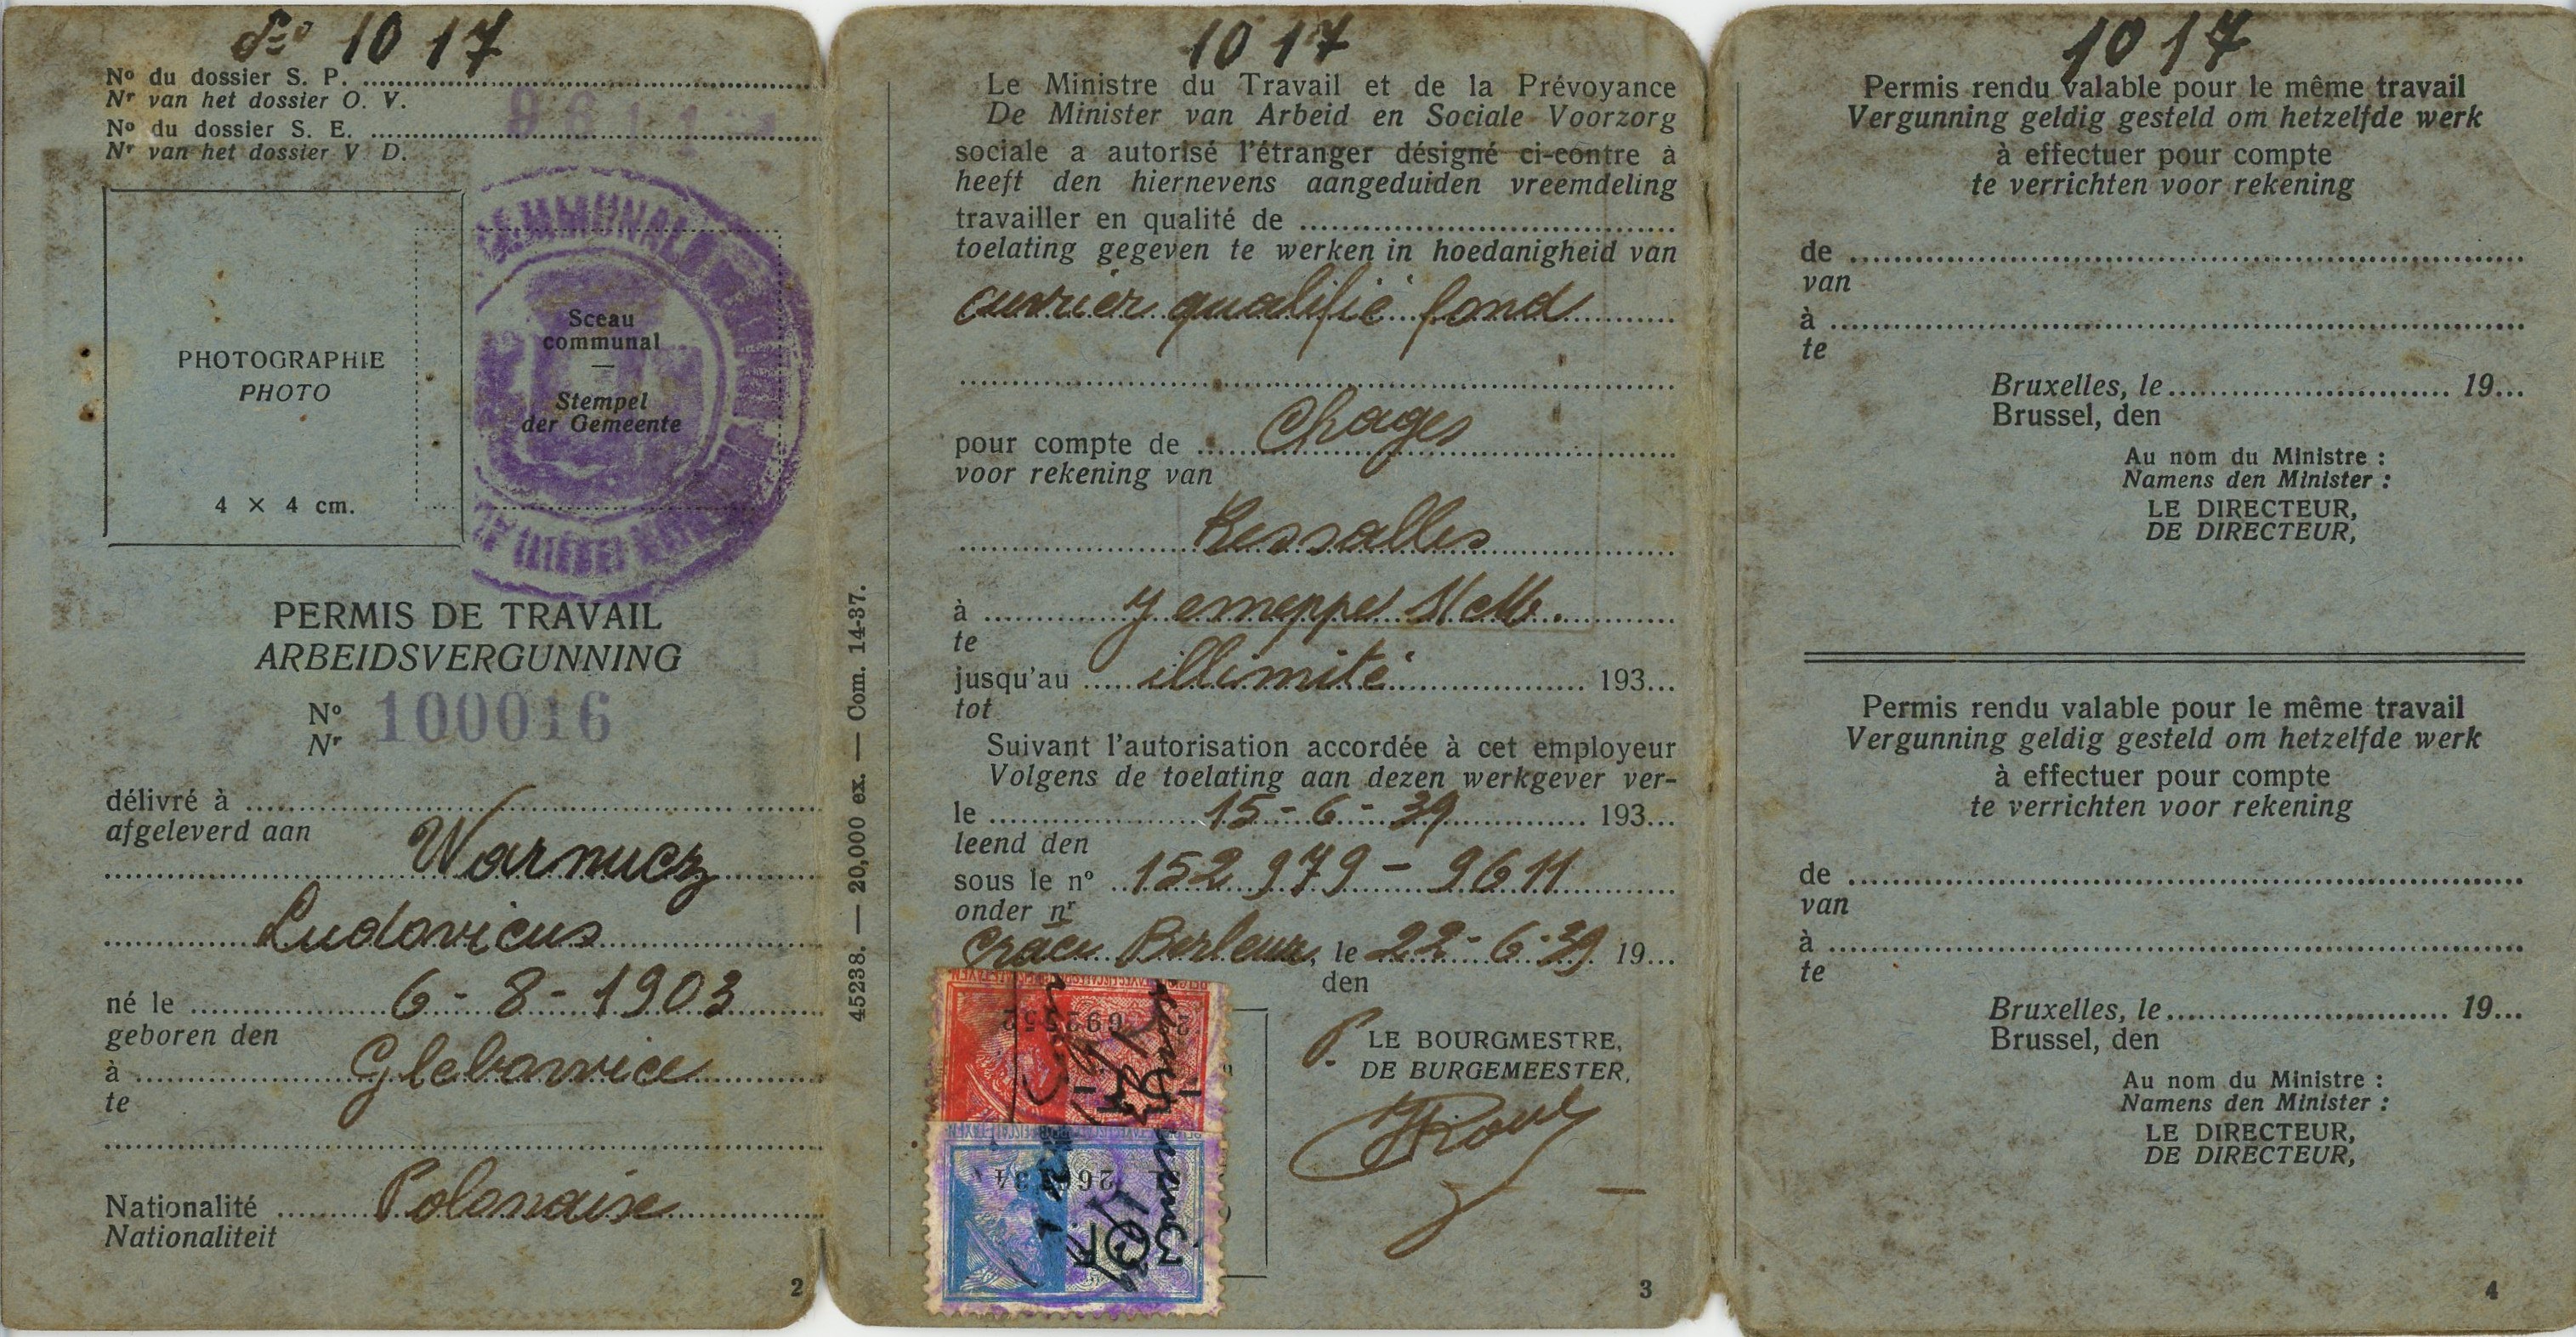 No 1017
No du dossier S. P. ....................
Nr van het dossier O. V.
No du dossier S. E. ....................
Nr van het dossier V D.
9611
PHOTOGRAPHIE
PHOTO
4 × 4 cm.
COMMUNALE
Sceau
communal
—
Stempel
der Gemeente
(LIÉGE)
PERMIS DE TRAVAIL
ARBEIDSVERGUNNING
No
Nr 100016
délivré à ....................
afgeleverd aan
Warnucz
Ludovicus
né le 6 - 8 - 1903
geboren den
à Glebowice
te
Nationalité Polonaise
Nationaliteit
2
45238. — 20,000 ex. — Com. 14-37.
1017
Le Ministre du Travail et de la Prévoyance
De Minister van Arbeid en Sociale Voorzorg
sociale a autorisé l'étranger désigné ci-contre à
heeft den hiernevens aangeduiden vreemdeling
travailler en qualité de ....................
toelating gegeven te werken in hoedanigheid van
ouvrier qualifié fond
pour compte de Chages
voor rekening van
Kessalles
à Jemeppe s/Me.
te
jusqu'au illimité 193...
tot
Suivant l'autorisation accordée à cet employeur
Volgens de toelating aan dezen werkgever ver-
le 15 - 6 - 39 193...
leend den
sous le no 152 979 - 9611
onder nr
Grâce Berleur, le 22 - 6 - 39 19...
den
P. LE BOURGMESTRE,
DE BURGEMEESTER,
3
1017
Permis rendu valable pour le même travail
Vergunning geldig gesteld om hetzelfde werk
à effectuer pour compte
te verrichten voor rekening
de ....................
van
à ....................
te
Bruxelles, le .................... 19...
Brussel, den
Au nom du Ministre :
Namens den Minister :
LE DIRECTEUR,
DE DIRECTEUR,
Permis rendu valable pour le même travail
Vergunning geldig gesteld om hetzelfde werk
à effectuer pour compte
te verrichten voor rekening
de ....................
van
à ....................
te
Bruxelles, le .................... 19...
Brussel, den
Au nom du Ministre :
Namens den Minister :
LE DIRECTEUR,
DE DIRECTEUR,
4